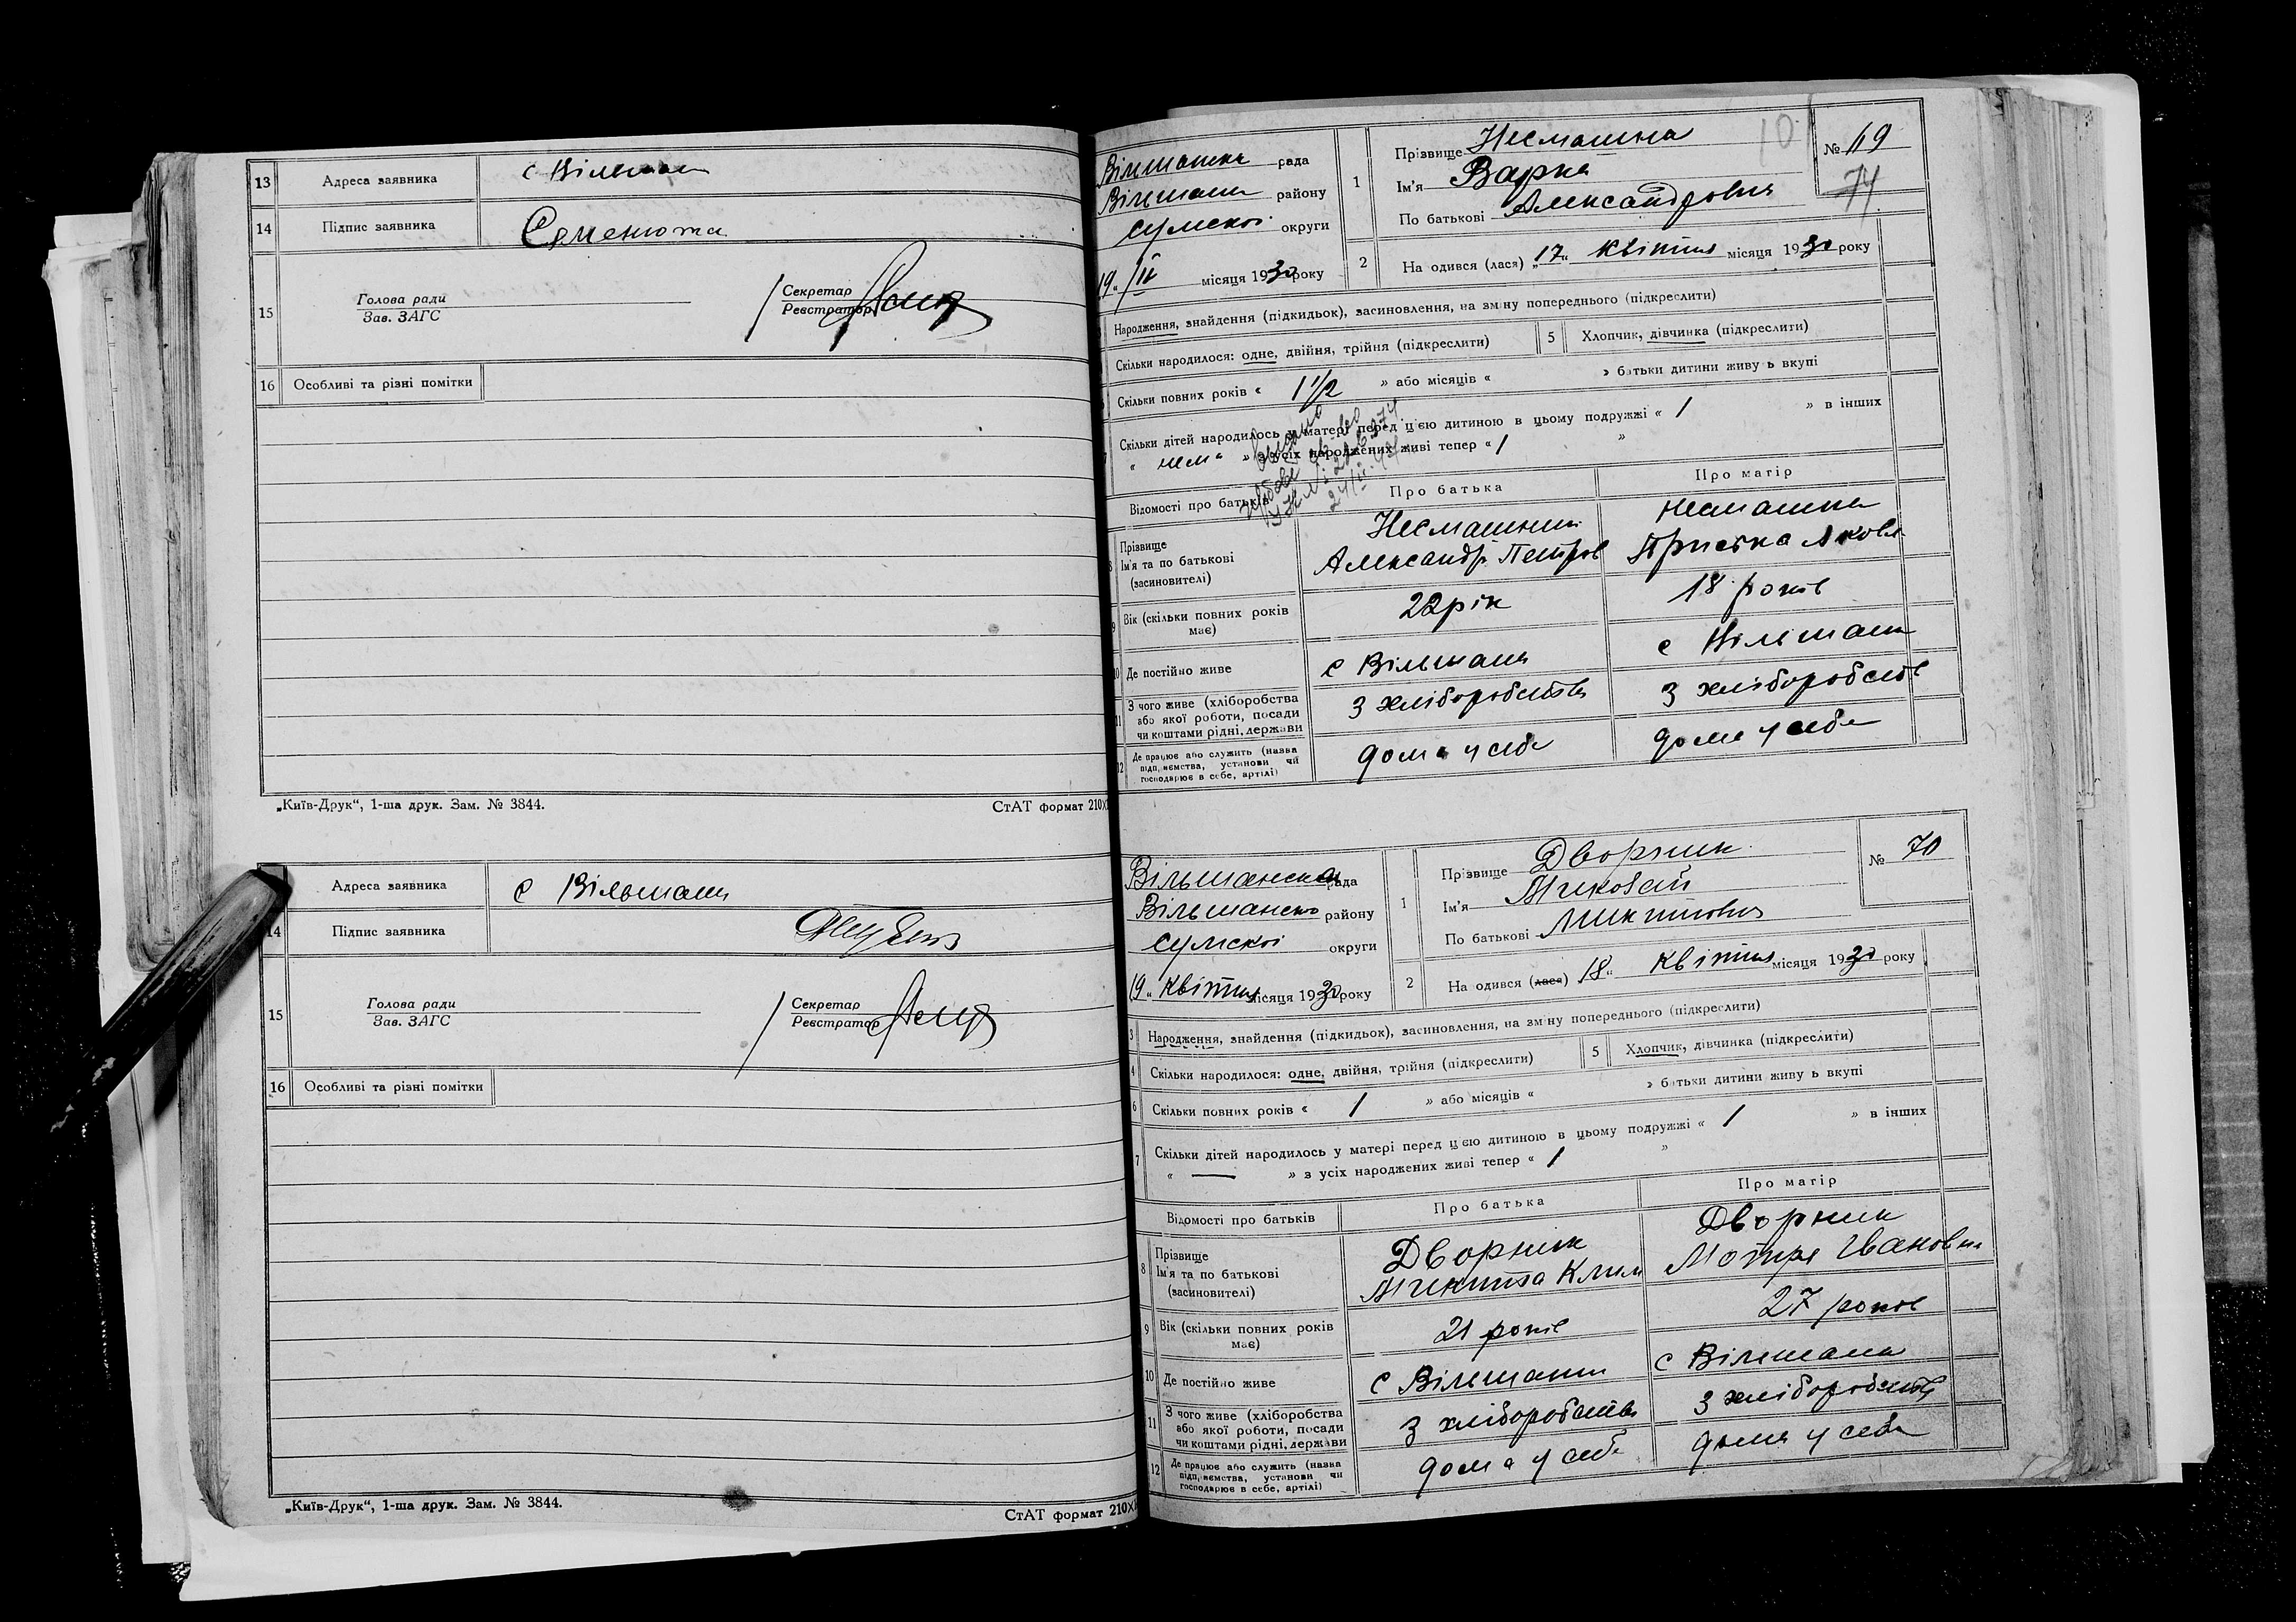 13 Адреса заявника с Вільшани
14 Підпис заявника Семенюта
15 Голова ради Секретар
Зав. ЗАГС Реєстратор
16 Особливі та різні помітки
„Київ-Друк“, 1-ша друк. Зам. № 3844. СтАТ формат 210X
Адреса заявника с Вільшани
14 Підпис заявника
15 Голова ради Секретар
Зав. ЗАГС Реєстратор
16 Особливі та різні помітки
„Київ-Друк“, 1-ша друк. Зам. № 3844. СтАТ формат 210X
10
№ 69
74
Вільшанська рада
Вільшани району
Сумскоі округи
19 „ IV місяця 1930 року
1 Прізвище Несмашна
Ім'я Варка
По батькові Александровна
2 На одився (лася) „17“ квітня місяця 1930 року
Народження, знайдення (підкидьок), засиновлення, на зміну попереднього (підкреслити)
Скільки народилося: одне, двійня, трійня (підкреслити) 5 Хлопчик, дівчинка (підкреслити)
Скільки повних років « 1 1/2 » або місяців « » батьки дитини живуть вкупі
Скільки дітей народилось у матері перед цією дитиною в цьому подружжі « 1 » в інших
« нема » з усіх народжених живі тепер « 1 »
Відомості про батьків Про батька Про матір
8 Прізвище Несмашний Несмашна
Ім'я та по батькові Александр Петров Пріська Яковл
(засиновителі)
9 Вік (скільки повних років має) 22 рік 18 років
10 Де постійно живе с Вільшани с Вільшани
11 З чого живе (хліборобства або якої роботи, посади чи коштами рідні, держави З хліборобства З хліборобств
12 Де працює або служить (назва підприємства, установи чи господарює в себе, артілі) дома у себе дома у себе
№ 70
Вільшанська рада
Вільшанско району
Сумскоі округи
19 „ квітня місяця 1930 року
1 Прізвище Дворник
Ім'я Миколай
По батькові Микитович
2 На одився (лася) 18 „ квітня місяця 1930 року
3 Народження, знайдення (підкидьок), засиновлення, на зміну попереднього (підкреслити)
4 Скільки народилося: одне, двійня, трійня (підкреслити) 5 Хлопчик, дівчинка (підкреслити)
6 Скільки повних років « 1 » або місяців « » батьки дитини живуть вкупі
7 Скільки дітей народилось у матері перед цією дитиною в цьому подружжі « 1 » в інших
« — » з усіх народжених живі тепер « 1 »
Відомості про батьків Про батька Про матір
8 Прізвище Дворник Дворник
Ім'я та по батькові Микита Клим Мотря Івановна
(засиновителі)
9 Вік (скільки повних років має) 21 років 27 років
10 Де постійно живе с Вільшани с Вільшани
11 З чого живе (хліборобства або якої роботи, посади чи коштами рідні, держави З хліборобства З хліборобства
12 Де працює або служить (назва підприємства, установи чи господарює в себе, артілі) дома у себе дома у себе